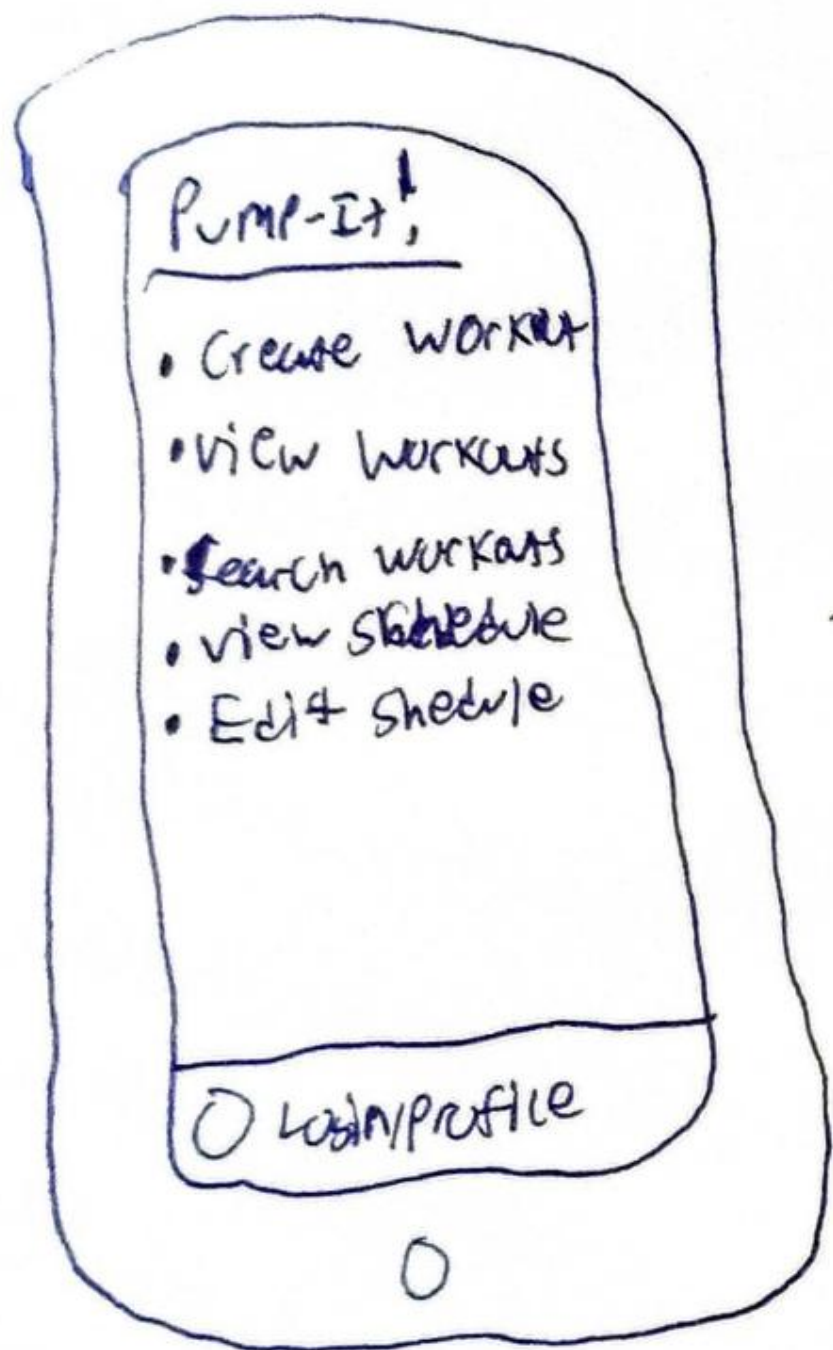 Pump-It!
• Create workout
• view workouts
• Search workouts
• view Schedule
• Edit Shedule
Login/profile